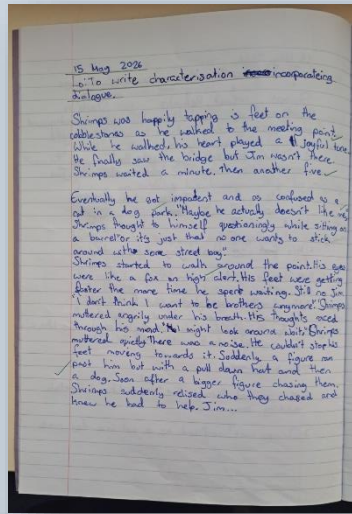 15 May 2026
L.o: To write characterisation incorporateing
dialogue.
Shrimps was happily tapping is feet on the
cobblestones as he walked to the meeting point.
While he walked, his heart played a joyful tune.
He finally saw the bridge but Jim wasn't there.
Shrimps waited a minute. Then another five.
Eventually he got impatent and as confused as a
cat in a dog park. "Maybe he actualy doesn't like me,"
Shrimps thought to himself questioningly while sitting on
a barrel "or its just that no one wants to stick
around with some street boy."
Shrimps started to walk around the point. His eyes
were like a fox on high alert. His feet were getting
faster the more time he spent waiting. Still no Jim.
"I don't think I want to be brothers anymore" Shrimps
muttered angrily under his breath. His thoughts raced
through his mind. "I might look around abit" Shrimps
muttered quietly. There was a noise. He couldn't stop his
feet moveng towards it. Suddenly a figure ran
past him but with a pull down hat and then
a dog. Soon after a bigger figure chasing them.
Shrimps suddenly relised who they chased and
knew he had to help. Jim...